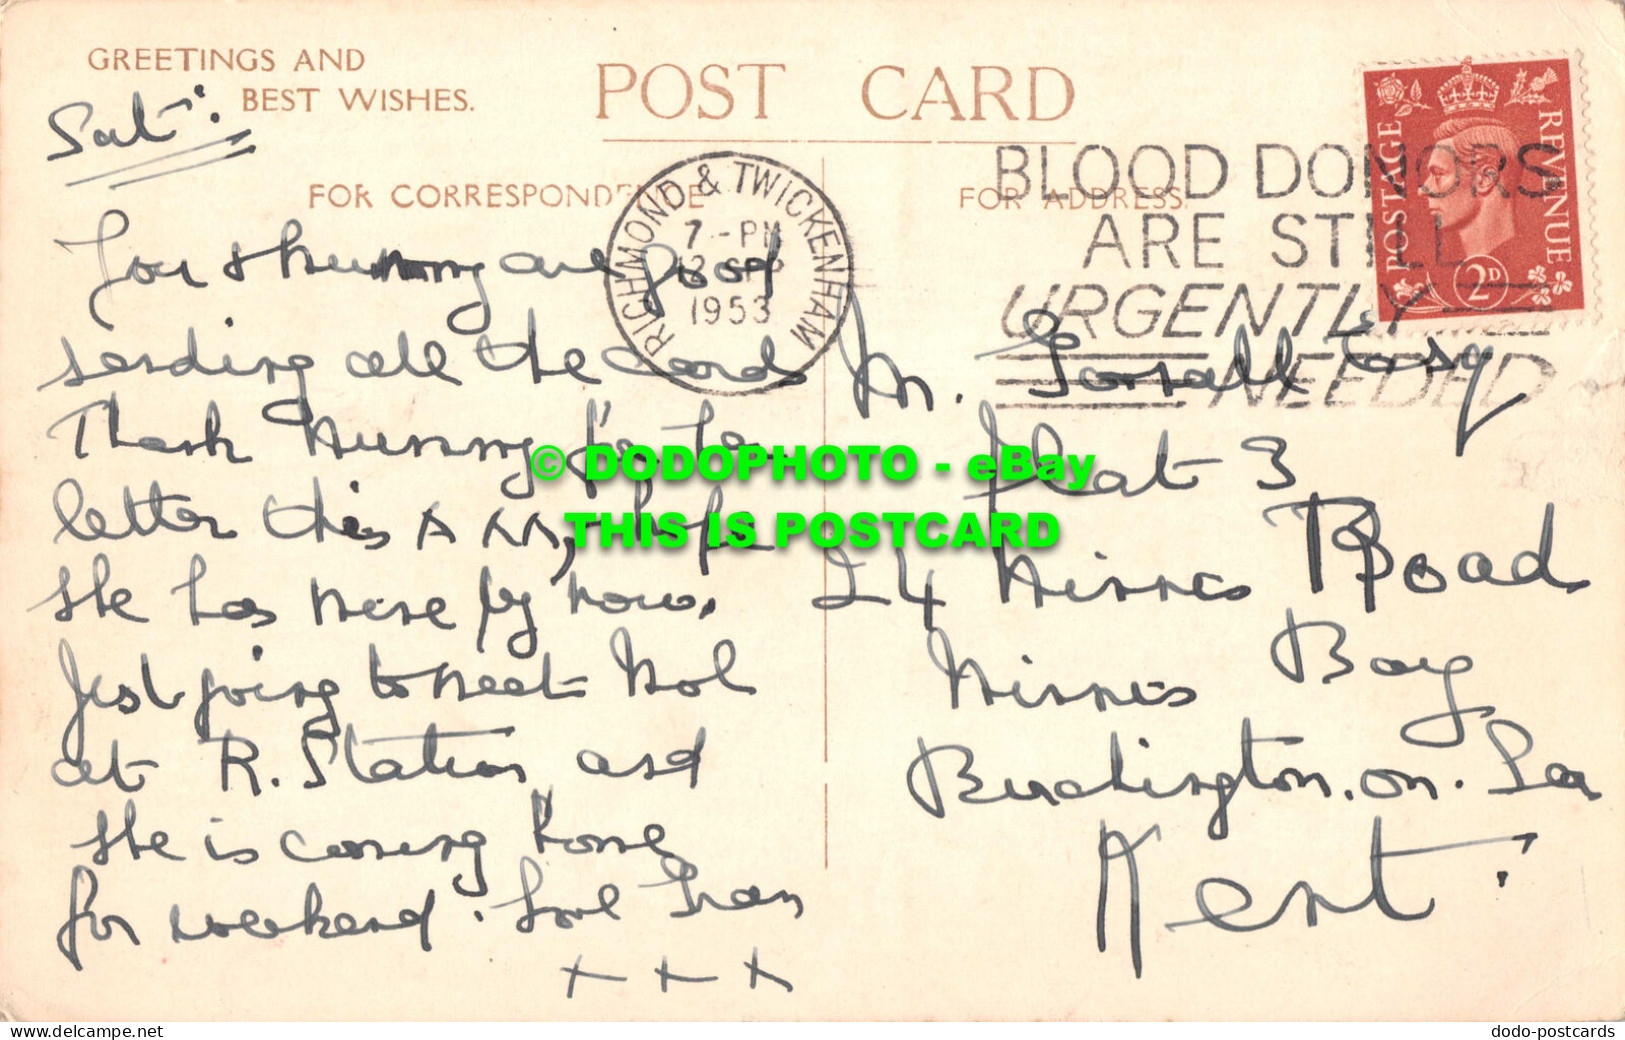 GREETINGS AND
BEST WISHES.
POST CARD
Sat.
FOR CORRESPONDENCE
FOR ADDRESS.
RICHMOND & TWICKENHAM
7-PM
12 SEP
1953
BLOOD DONORS
ARE STILL
URGENTLY
NEEDED
POSTAGE REVENUE
2D
You & Mummy are good
sending all the cards
Thank Mummy for
letter this A M, hope
she has mine by now.
Just going to meet Mol
at R. Station and
she is coming home
for weekend. Love Gran
+ + +
M. esq
Flat 3
24 Minnis Road
Minnis Bay
Birchington. on. Sea
Kent.
© DODOPHOTO - eBay
THIS IS POSTCARD
delcampe.net
dodo-postcards